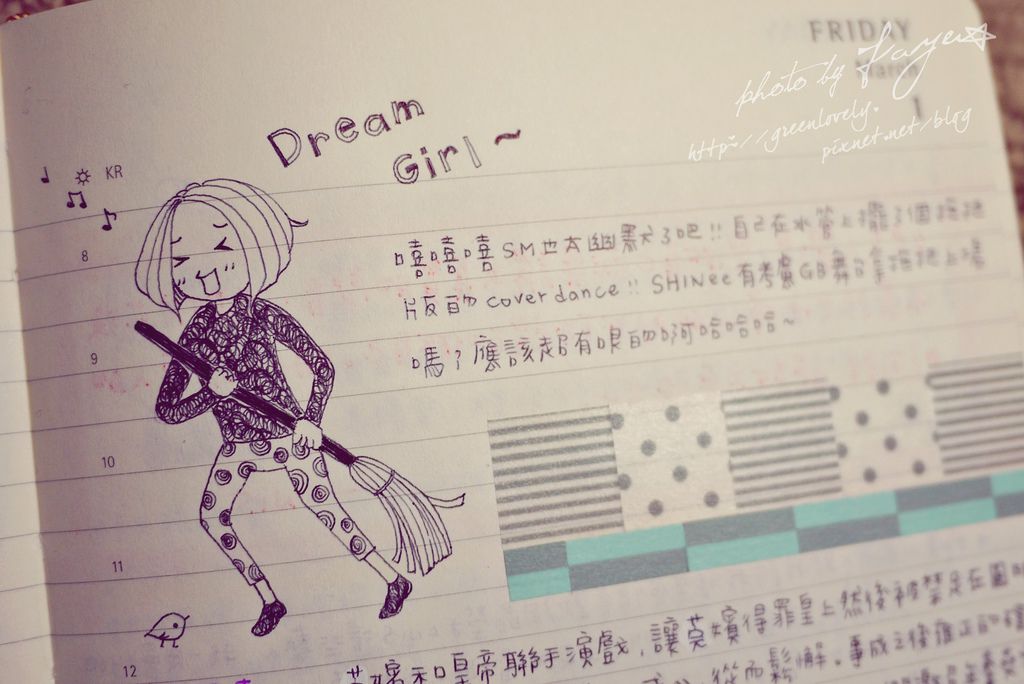 FRIDAY
March
1
photo by Faye
http://greenlovely.
pixnet.net/blog
Dream
Girl~
KR
8
嘻嘻嘻 SM也太幽默了吧!! 自己在水管上擺了個拖把
版的 cover dance!! SHINee 有考慮GB舞台拿拖把上場
嗎? 應該超有哏的啊哈哈哈~
9
10
11
12
莫嬪和皇帝聯手演戲,讓莫嬪得罪皇上然後被禁足在圓明
從而鬆懈。事成之後雍正的確